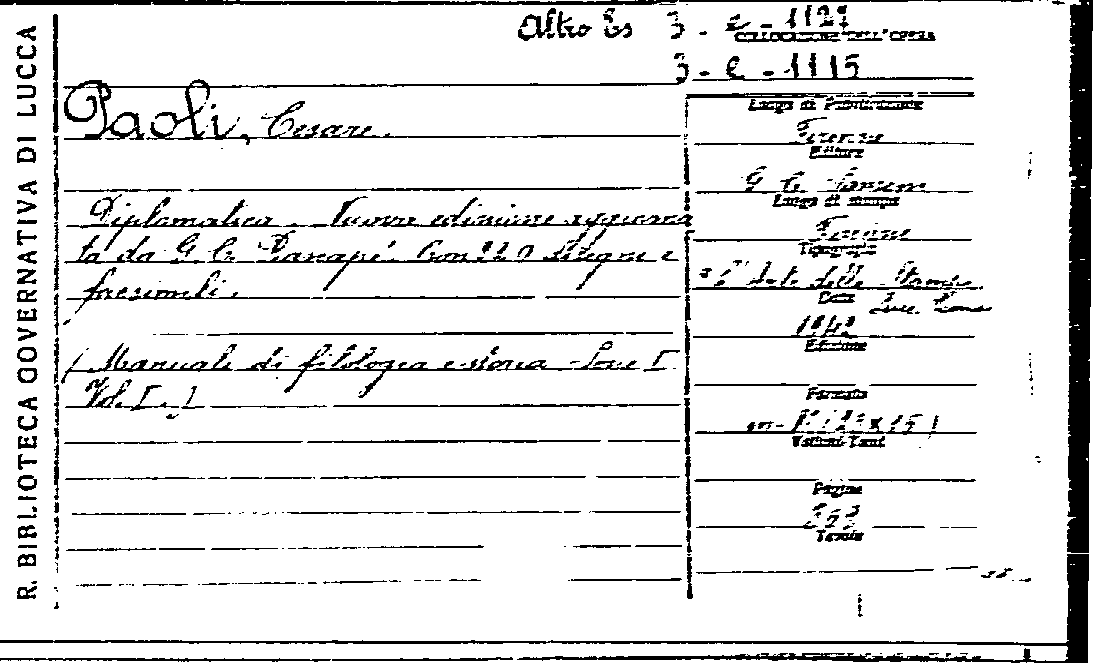 R. BIBLIOTECA GOVERNATIVA DI LUCCA
Altro Es 3 - e - 1127
COLLOCAZIONE DELL'OPERA
3 - e - 1115
Paoli, Cesare.
Diplomatica. Nuova edizione aggiorna
ta da G. C. Bascapé. Con 220 disegni e
facsimili.
(Manuale di filologia e storia - Serie I
Vol. I.)
Luogo di Pubblicazione
Firenze
Editore
G. C. Sansoni
Luogo di stampa
Firenze
Tipografia
L'Arte della Stampa
Data
1942
Edizione
Formato
in-8° (2 × 15)
Volumi-Tomi
Pagine
Tavole